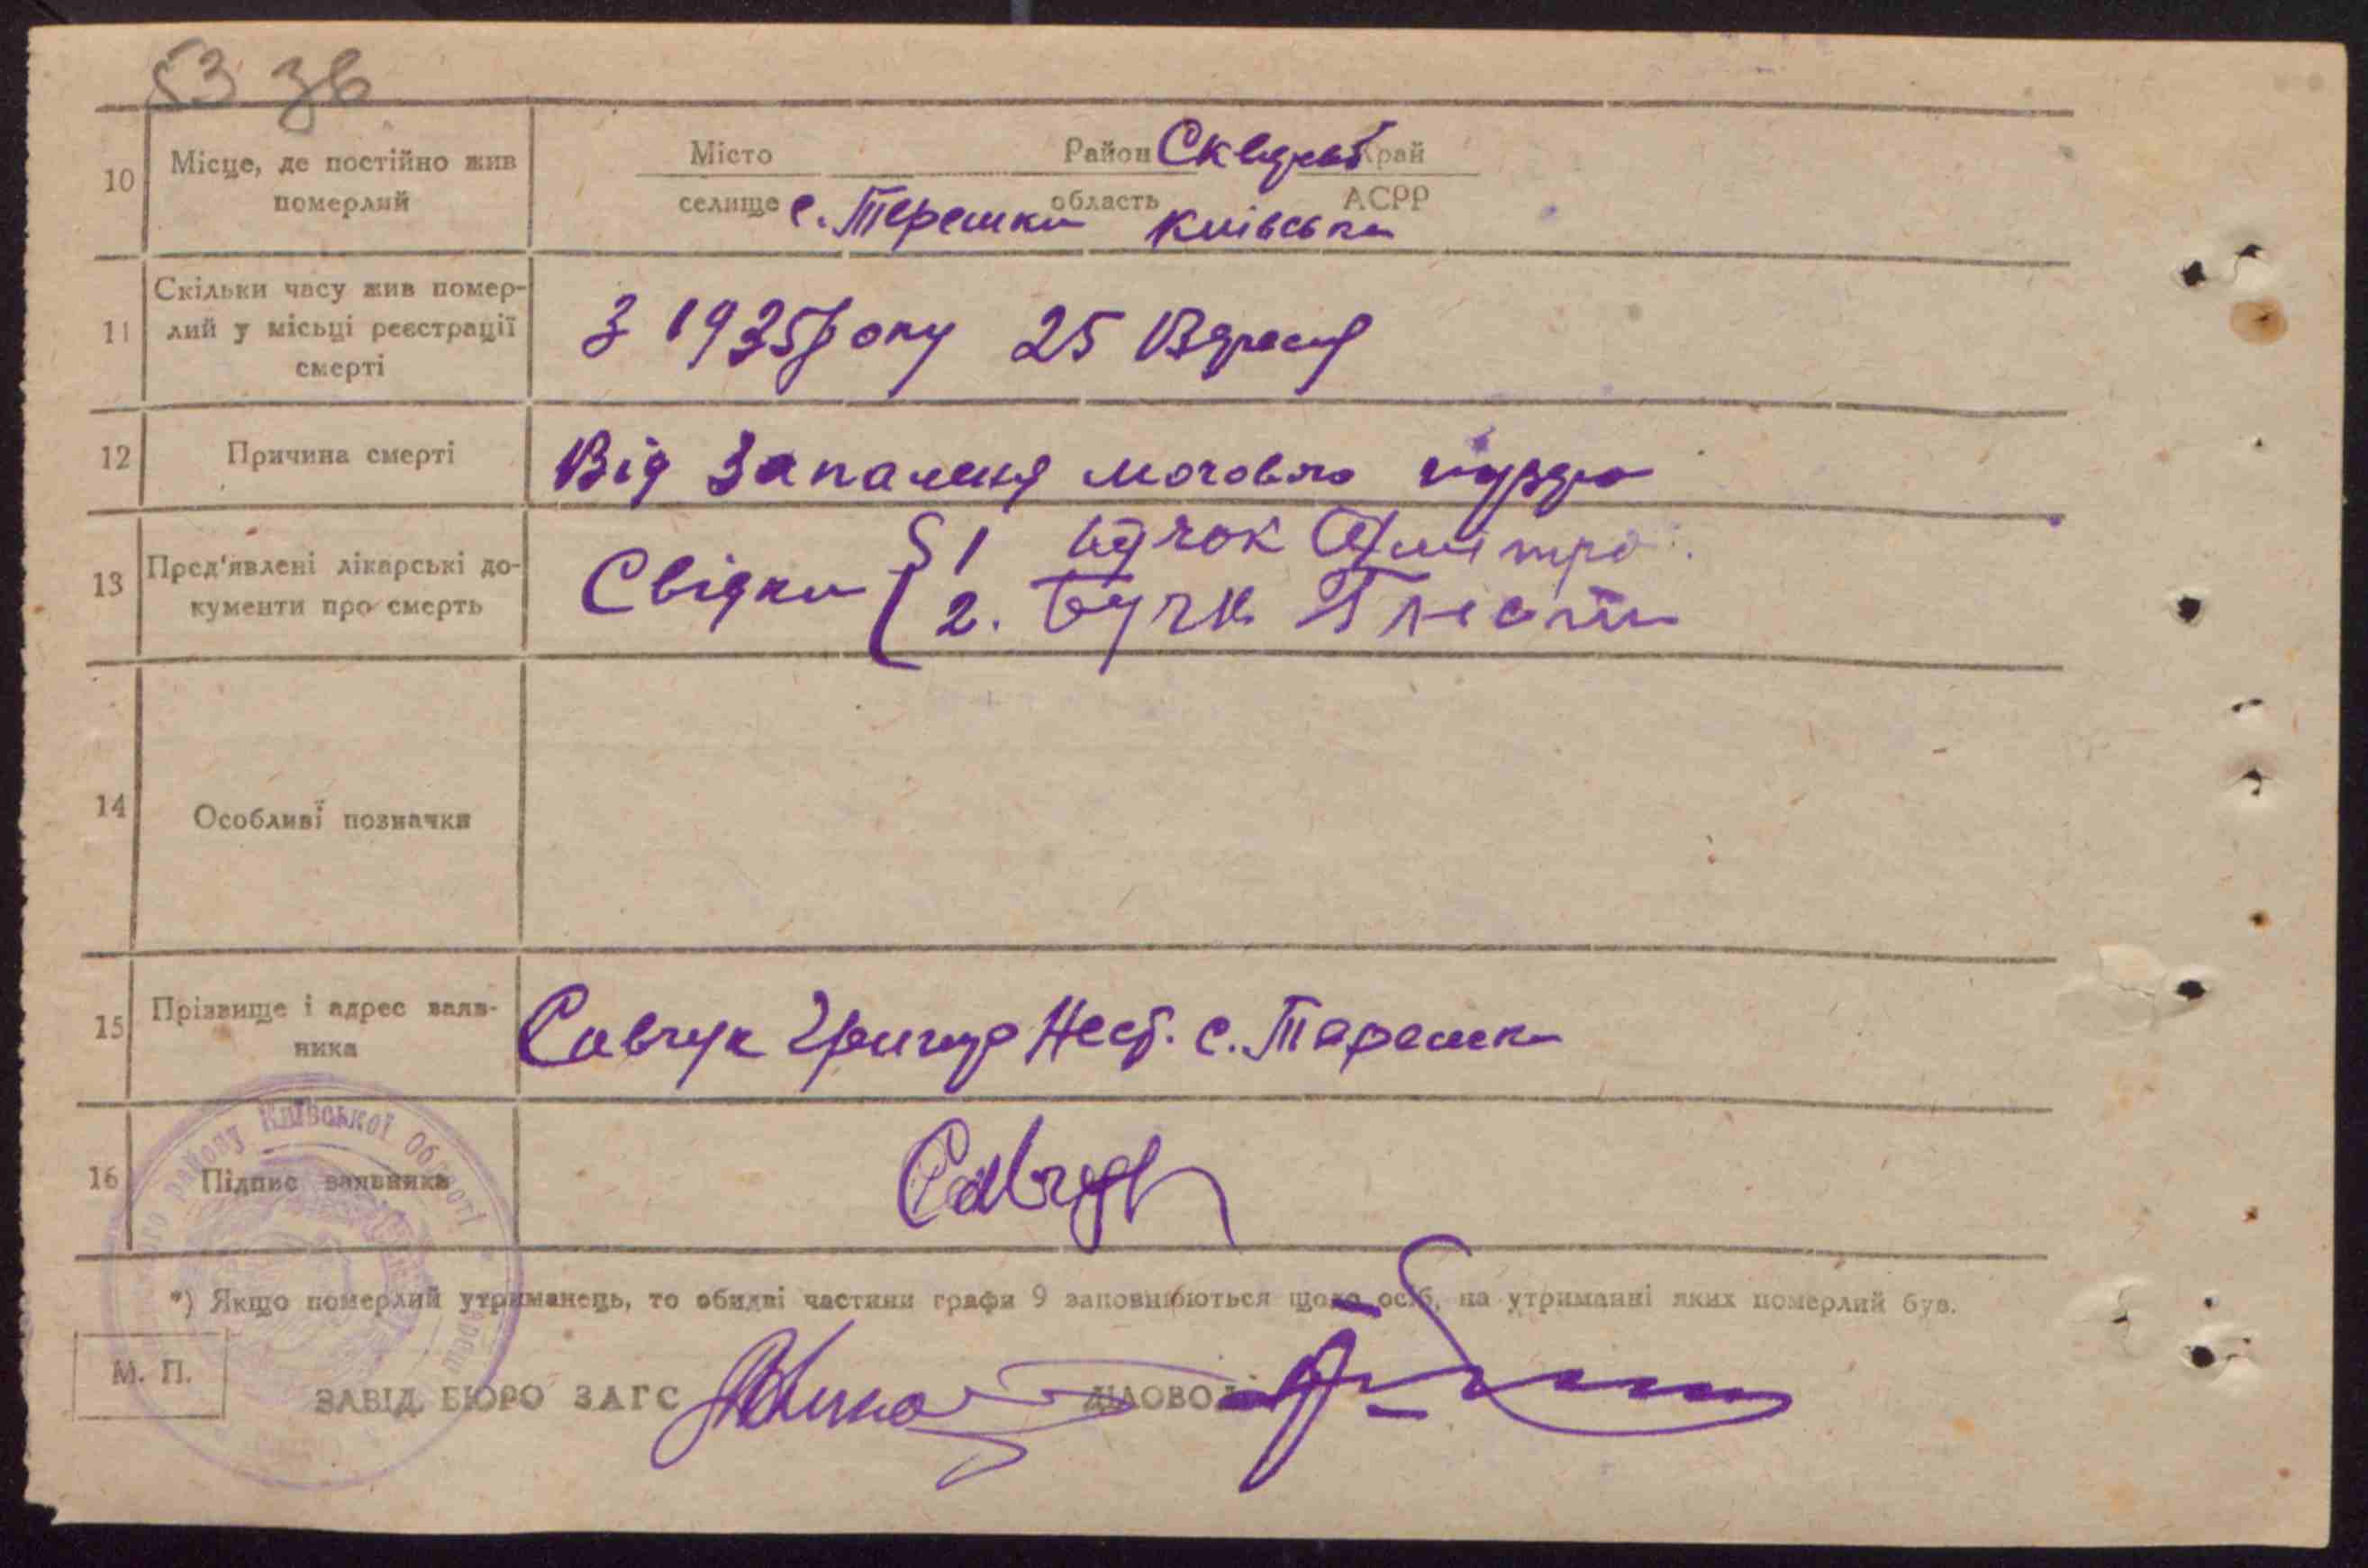 53 зв
10 Місце, де постійно жив померлий
Місто Район Сквирськ Край
селище с. Терешки область Київська АСРР
11 Скільки часу жив помер-
лий у місьці реєстрації
смерті
З 1935 Року 25 Вдресня
12 Причина смерті
Від Запаленя мочового
13 Пред'явлені лікарські до-
кументи про смерть
Свідки 1
2.
14 Особливі позначки
15 Прізвище і адрес заяв-
ника
Савчук Григор Нест. с. Терешки
16 Підпис заявника
Савчук
Київської Області
району
*) Якщо померлий утриманець, то обидві частини графи 9 заповнюються щодо осіб, на утриманні яких померлий був.
М. П.
ЗАВІД. БЮРО ЗАГС ДІЛОВОД